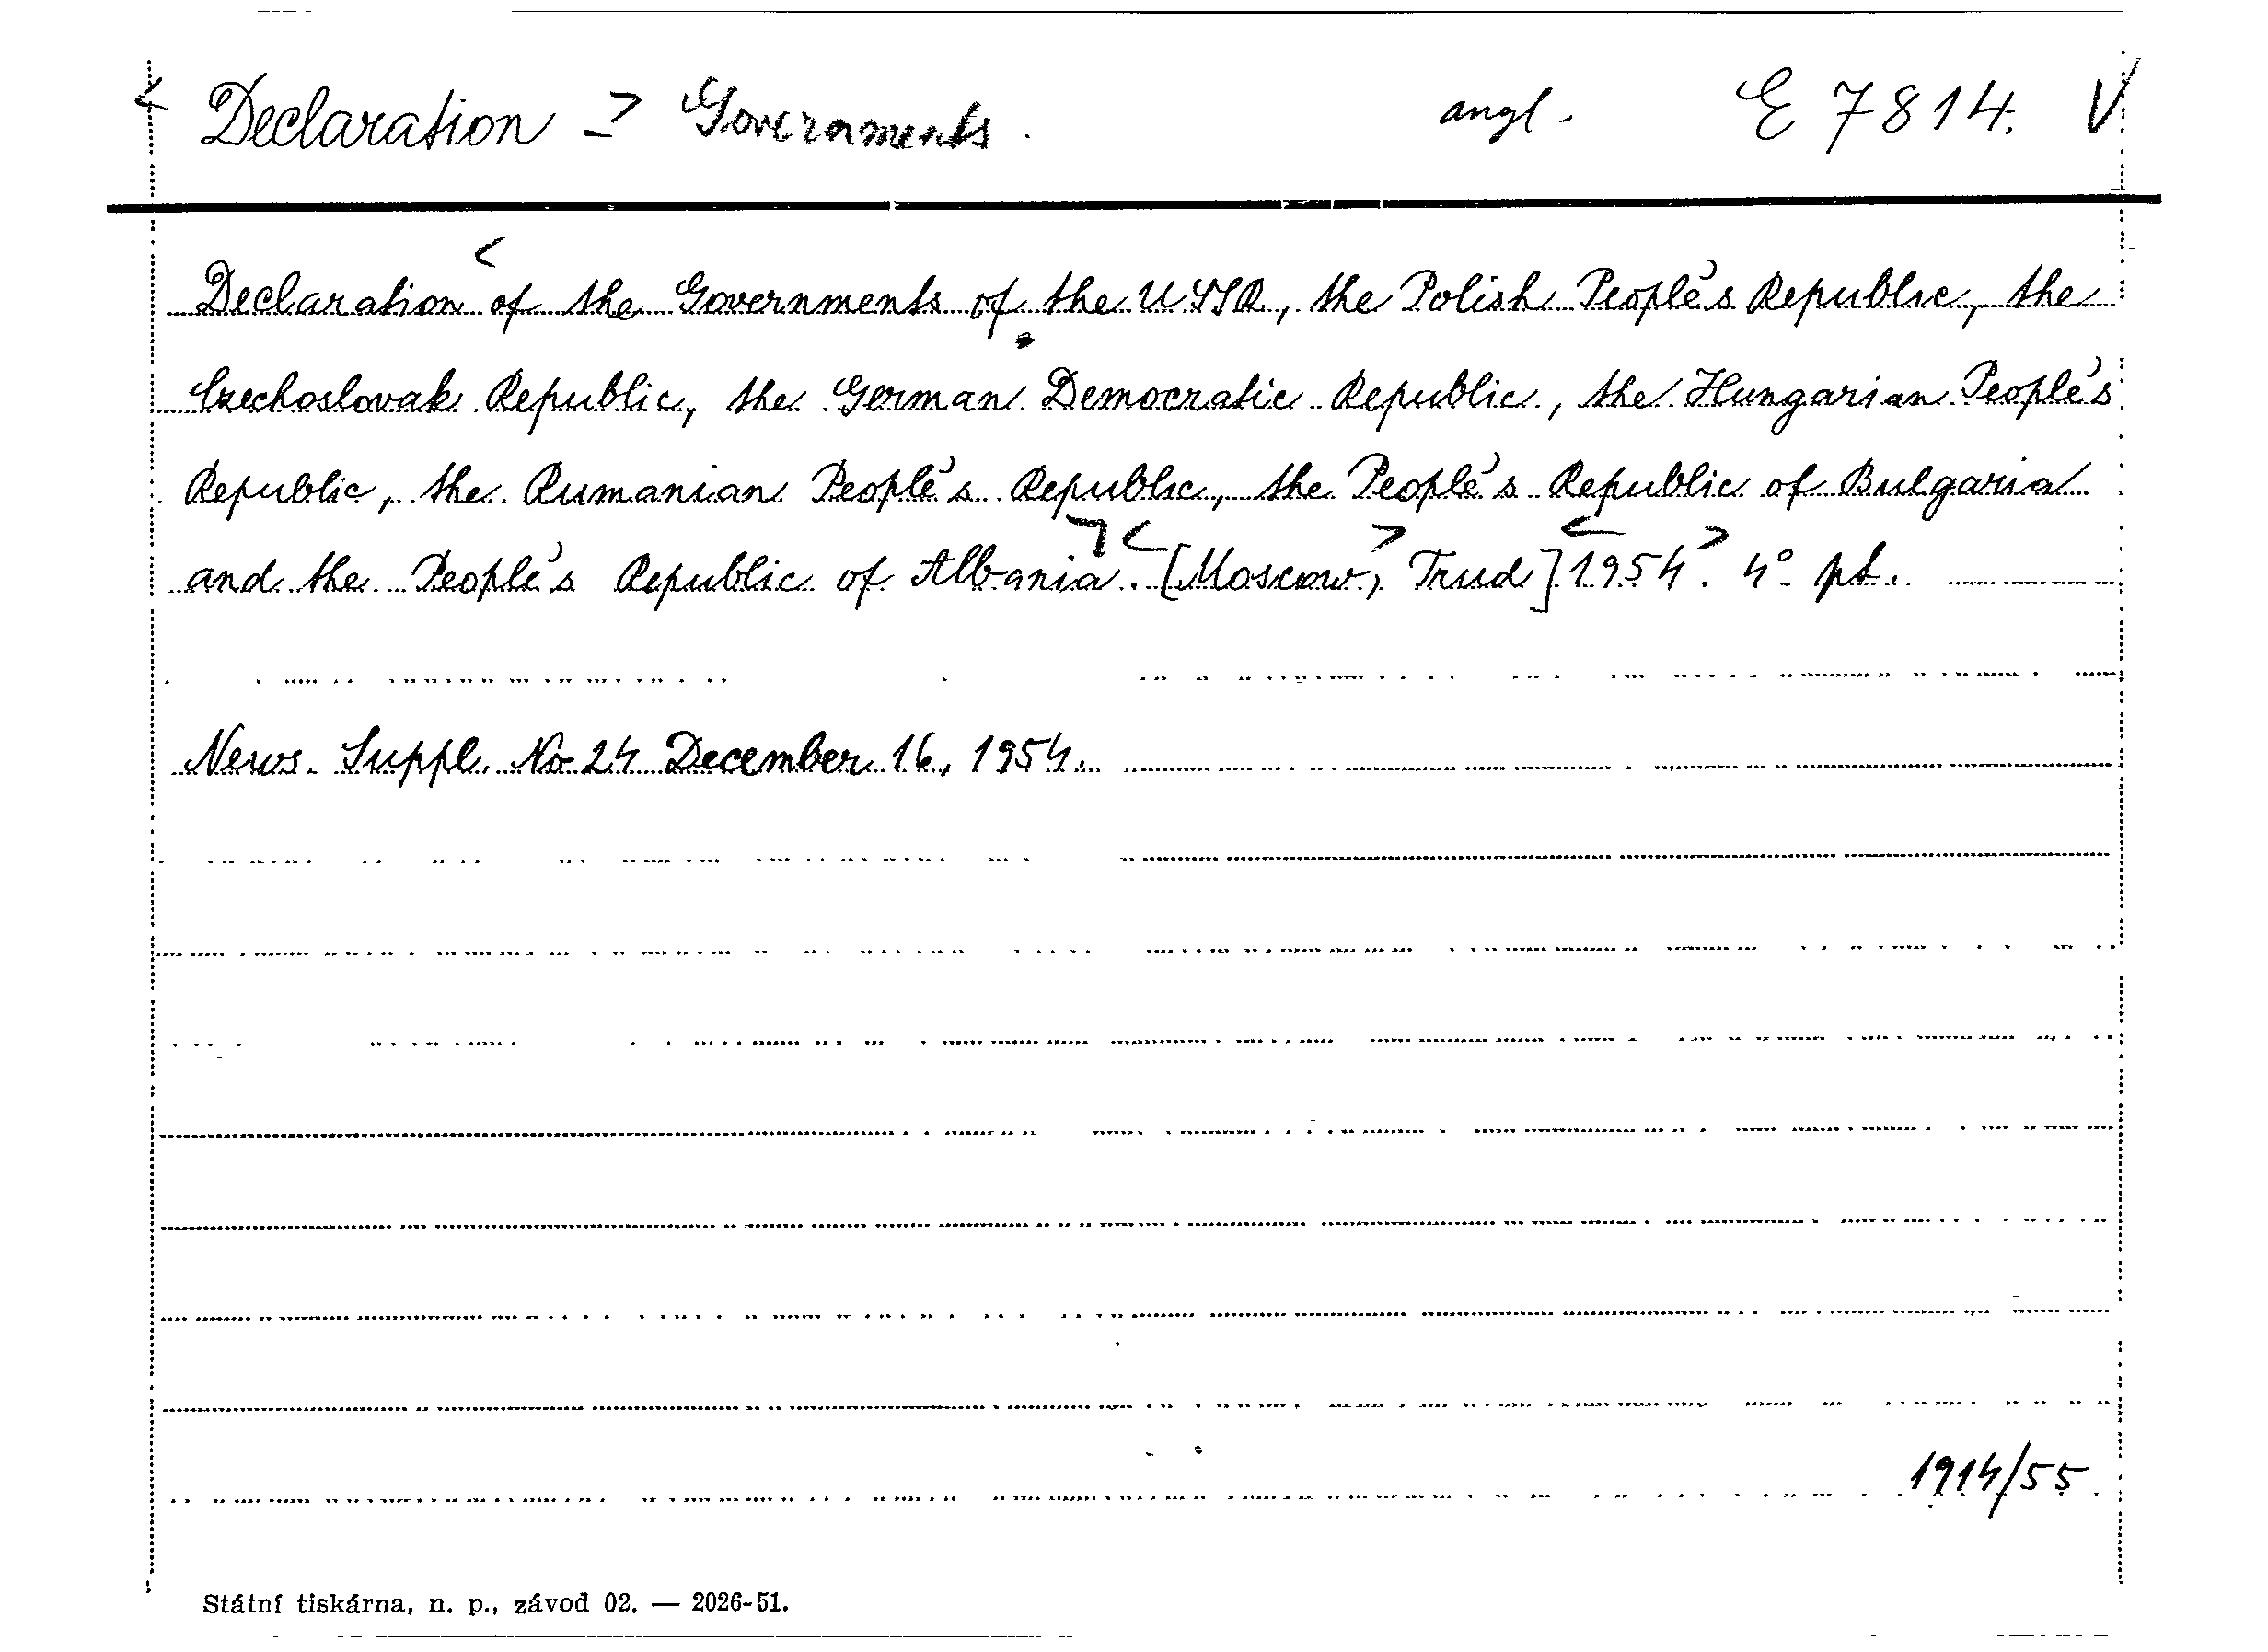 < Declaration -> Governments. angl. E 7814. V
Declaration of the Governments of the USSR, the Polish People's Republic, the
Czechoslovak Republic, the German Democratic Republic, the Hungarian People's
Republic, the Rumanian People's Republic, the People's Republic of Bulgaria
and the People's Republic of Albania. [Moscow, Trud] 1954. 4° pt.
News. Suppl. No 24 December 16, 1954.
1914/55
Státní tiskárna, n. p., závod 02. — 2026-51.